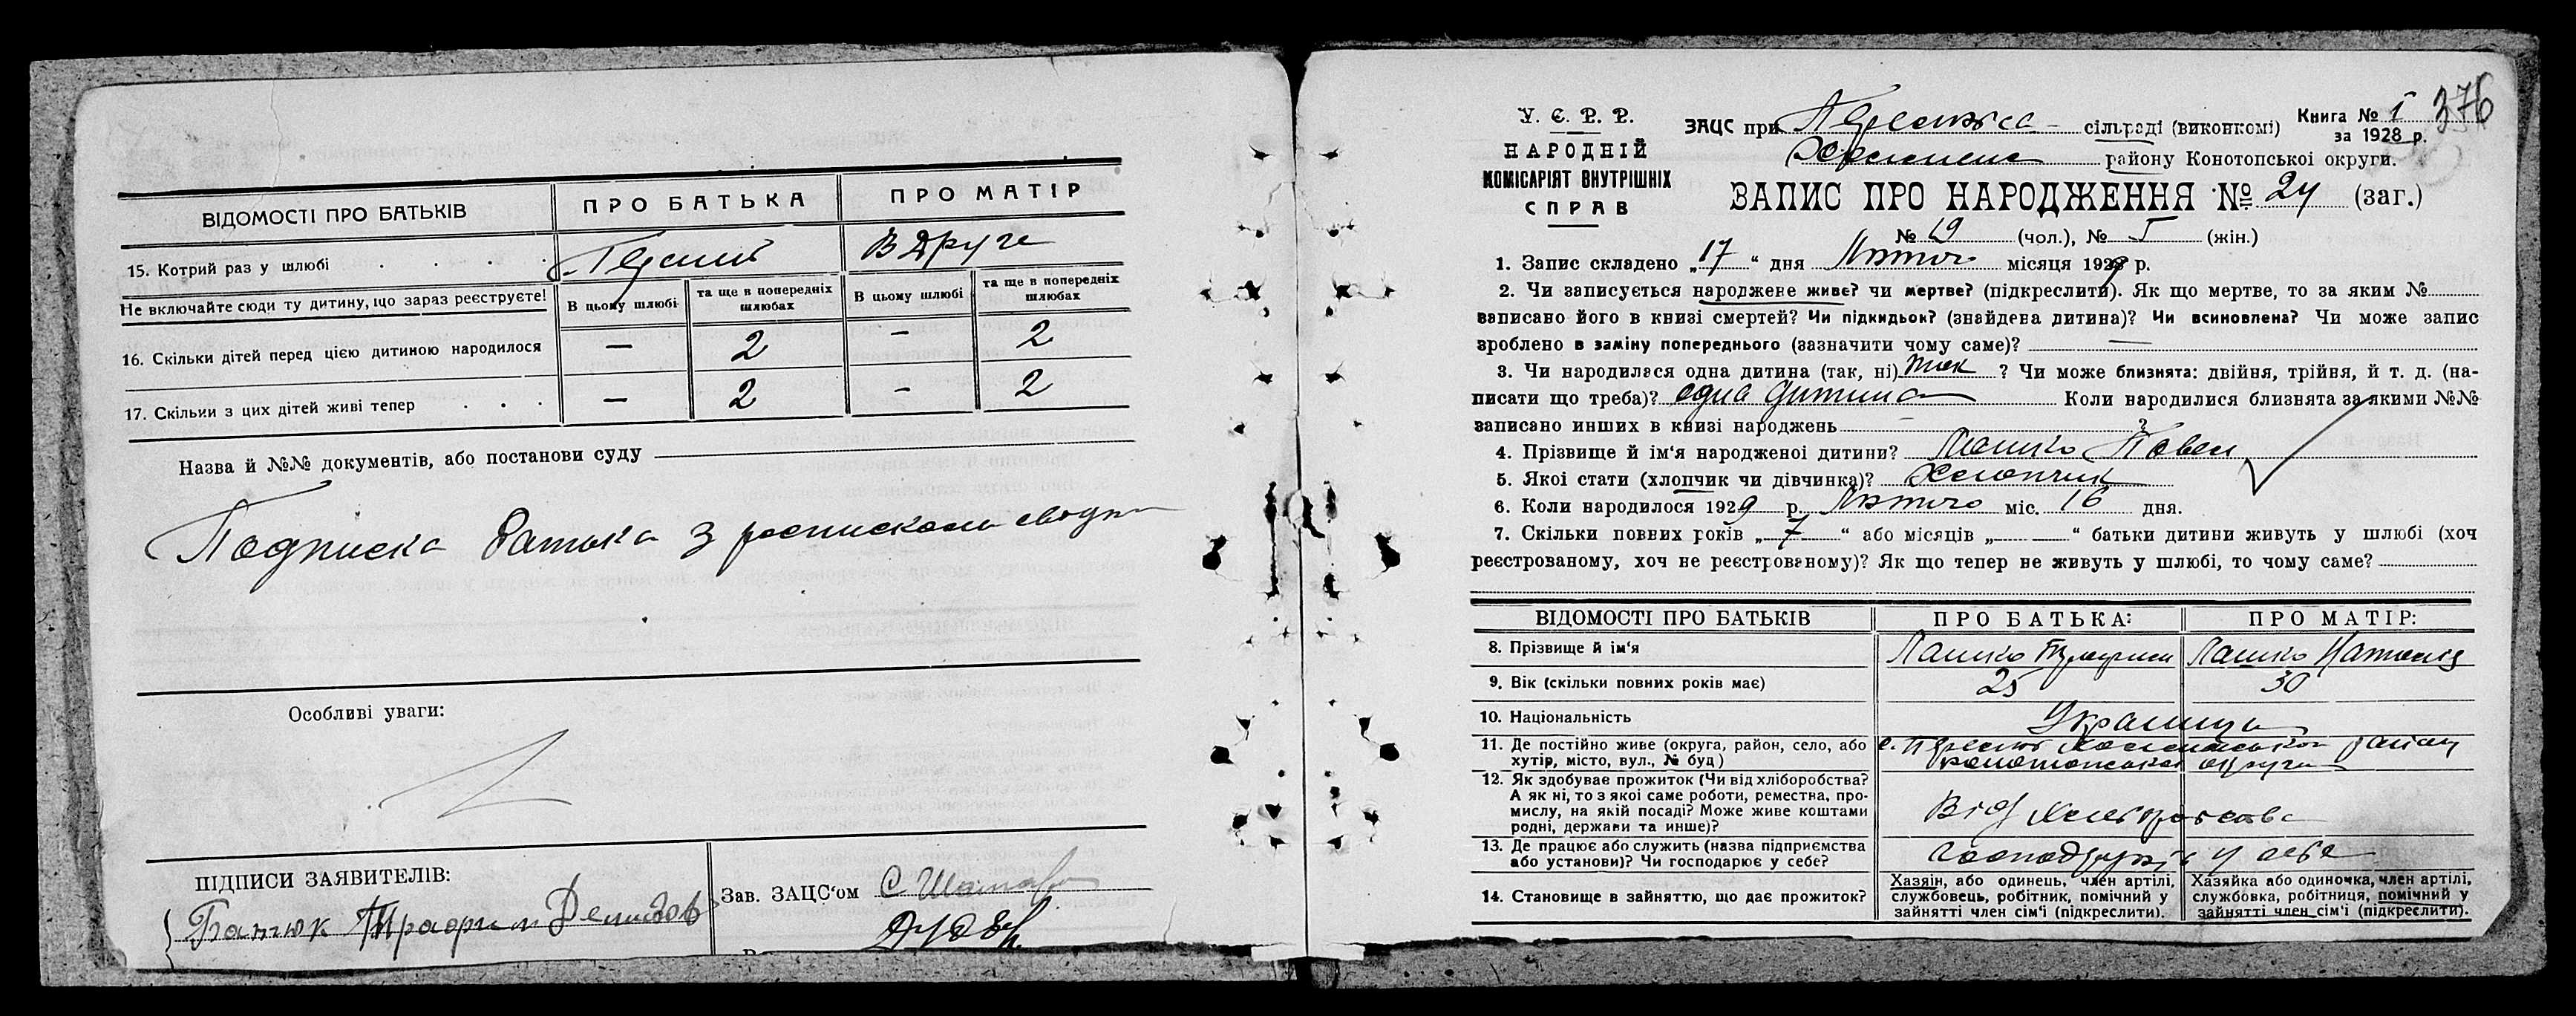 ВІДОМОСТІ ПРО БАТЬКІВ
ПРО БАТЬКА
ПРО МАТІР
15. Котрий раз у шлюбі . . . .
Перший
В Друге
Не включайте сюди ту дитину, що зараз реєструєте!
В цьому шлюбі
та ще в попередніх шлюбах
В цьому шлюбі
та ще в попередніх шлюбах
16. Скільки дітей перед цією дитиною народилося
— 2 – 2
17. Скільки з цих дітей живі тепер . . .
— 2 – 2
Назва й №№ документів, або постанови суду
Подписка батька з
Особливі уваги:
ПІДПИСИ ЗАЯВИТЕЛІВ:
Зав. ЗАЦС‘ом
У. Є. Р. Р.
НАРОДНІЙ
КОМІСАРІЯТ ВНУТРІШНІХ
СПРАВ
ЗАЦС при сільраді (виконкомі)
Книга № I 376
за 1928 р.
району Конотопської округи.
ЗАПИС ПРО НАРОДЖЕННЯ № 24 (заг.)
№ 19 (чол.), № 5 (жін.)
1. Запис складено „17“ дня Лютого місяця 1929 р.
2. Чи записується народжене живе? чи мертве? (підкреслити). Як що мертве, то за яким №
записано його в книзі смертей? Чи підкидьок? (знайдена дитина)? Чи всиновлена? Чи може запис
зроблено в заміну попереднього (зазначити чому саме)? —
3. Чи народилася одна дитина (так, ні) так ? Чи може близнята: двійня, трійня, й т. д. (на-
писати що треба)? одна дитина Коли народилися близнята за якими №№
записано инших в книзі народжень ?
4. Прізвище й ім‘я народженої дитини? Лашко Павел
5. Якої стати (хлопчик чи дівчинка)? Хлопчик
6. Коли народилося 1929 р. Лютого міс. 16 дня.
7. Скільки повних років „ 7 “ або місяців „ — “ батьки дитини живуть у шлюбі (хоч
реєстрованому, хоч не реєстрованому)? Як що тепер не живуть у шлюбі, то чому саме?
ВІДОМОСТІ ПРО БАТЬКІВ
ПРО БАТЬКА:
ПРО МАТІР:
8. Прізвище й ім‘я
Лашко
Лашко Наталія
9. Вік (скільки повних років має)
25
30
10. Національність
Українці
11. Де постійно живе (округа, район, село, або
хутір, місто, вул., № буд)
району
Конотопської округи
12. Як здобуває прожиток (Чи від хліборобства?
А як ні, то з якої саме роботи, ремества, про-
мислу, на якій посаді? Може живе коштами
родні, держави та инше)?
Від хліборобства
13. Де працює або служить (назва підприємства
або установи)? Чи господарює у себе?
господарює у себе
14. Становище в зайняттю, що дає прожиток?
Хазяін, або одинець, член артілі,
службовець, робітник, помічний у
зайнятті член сім‘ї (підкреслити).
Хазяйка або одиночка, член артілі,
службовка, робітниця, помічний у
зайнятті член сім‘ї (підкреслити).